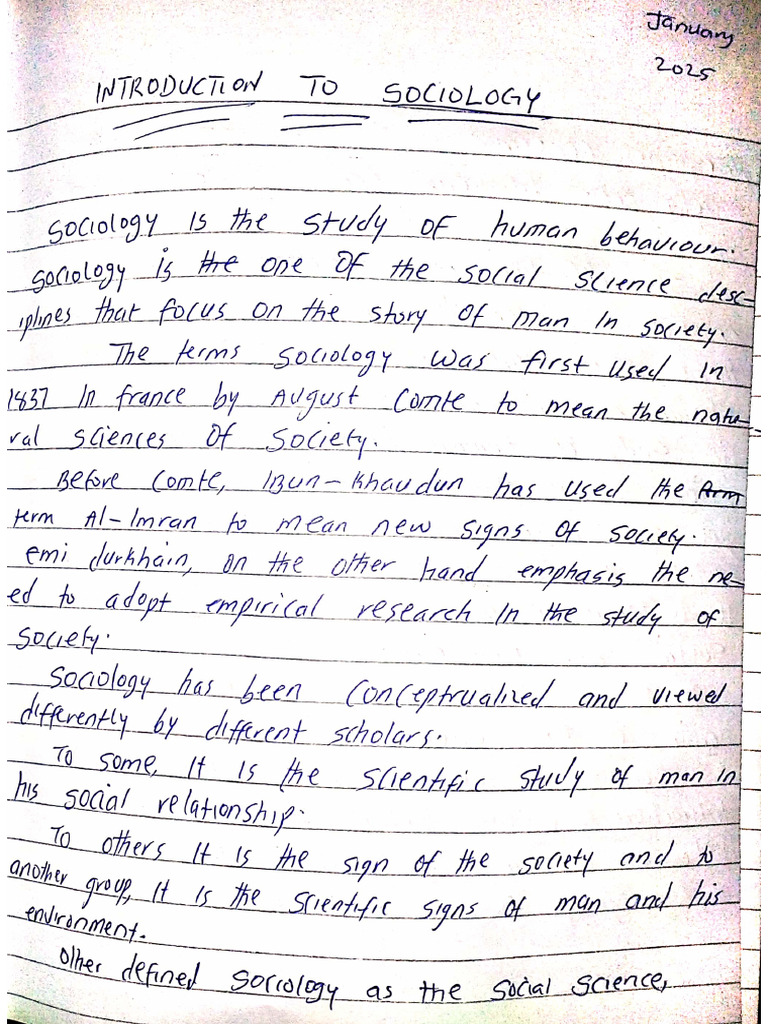 January
2025
INTRODUCTION TO SOCIOLOGY
Sociology is the study of human behaviour.
Sociology is the one of the social science desc-
iplines that focus on the story of man in society.
The terms sociology was first used in
1837 In france by August Comte to mean the natu-
ral sciences of society.
Before Comte, Ibun-Khaudun has used the Arm
term Al-Imran to mean new signs of society.
emi durkhain, on the other hand emphasis the ne-
ed to adopt empirical research in the study of
society.
Sociology has been Conceptrualized and viewed
differently by different scholars.
To some, It is the scientific study of man in
his social relationship.
To others It is the sign of the society and to
another group, it is the scientific signs of man and his
environment.
Other defined sociology as the social science,